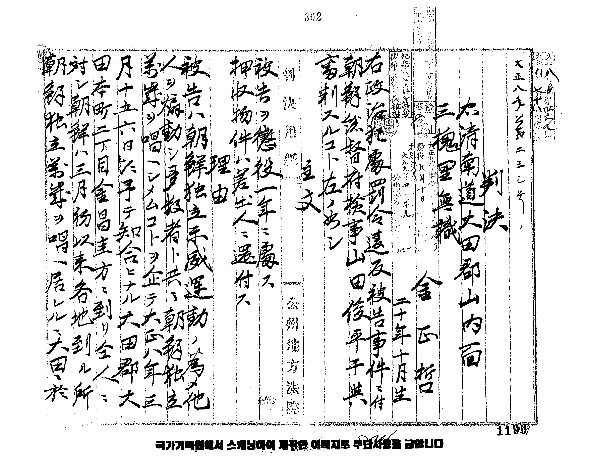 302
大正八年第二三三号
判決
忠清南道大田郡山内面
三槐里無職
金正哲
二十年十月生
右政治犯處罰令違反被告事件ニ付
朝鮮總督府検事山田俊平干與
審判スルコト左ノ如シ
主文
被告ヲ懲役一年ニ處ス
押収物件ハ差出人ニ還付ス
理由
被告ハ朝鮮独立示威運動ノ為メ他
人ヲ煽動シ多数者ト共ニ朝鮮独立
萬歳ヲ唱ヘシメムコトヲ企テ大正八年三
月十五六日頃予テ知合ヒナル大田郡大
田本町二丁目金昌圭方ニ到リ仝人ニ
対シ朝鮮ハ三月初以来各地到ル所
朝鮮独立萬歳ヲ唱ヘ居レルニ大田ニ於
判決用紙
公州地方法院
1198
국가기록원에서 스캐닝하여 제공한 이미지로 무단사용을 금합니다